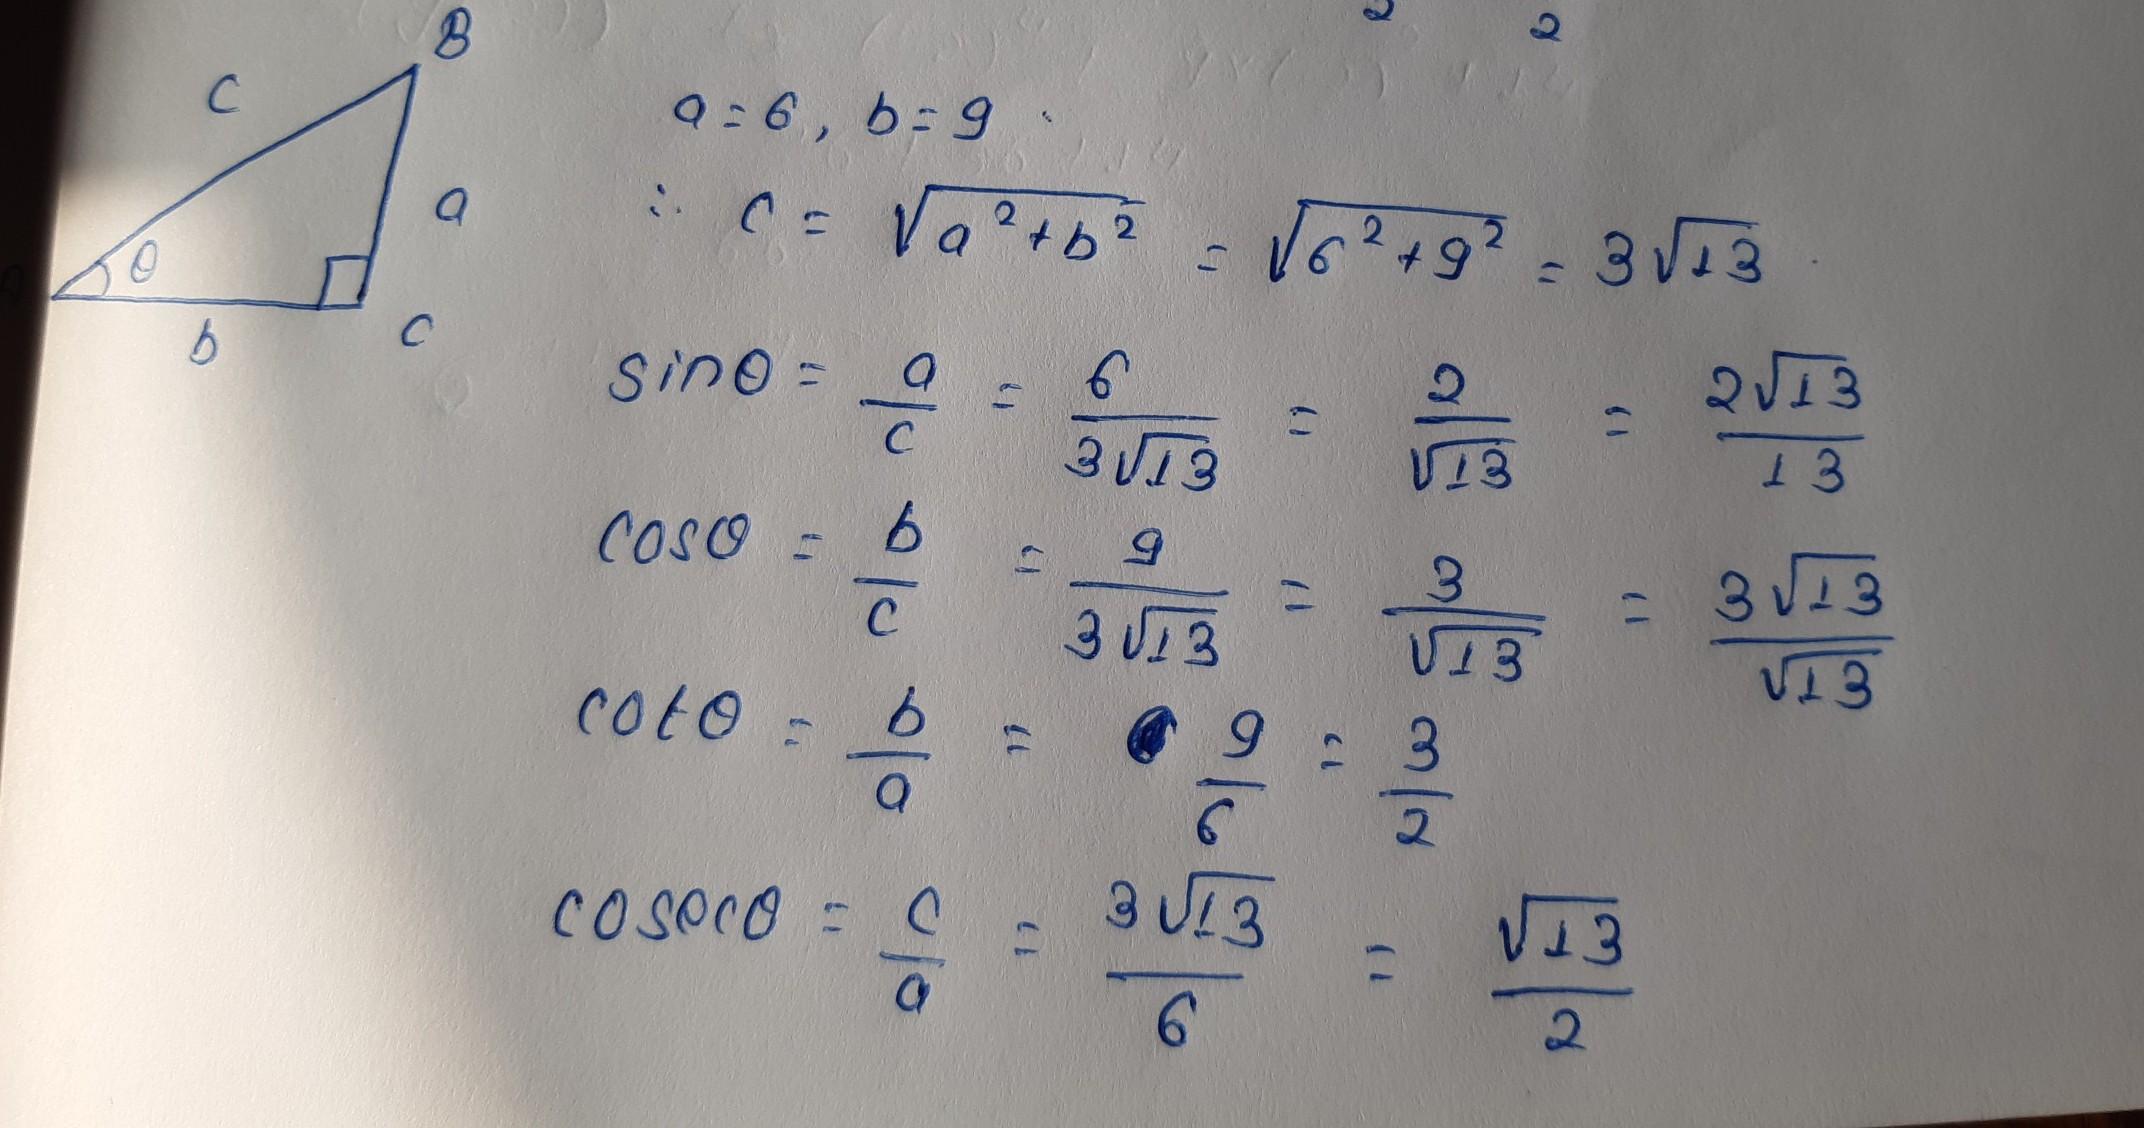 2 2
B
c
a = 6, b = 9
a
∴ c = √(a²+b²) = √(6²+9²) = 3√13
θ
b
C
sinθ = a/c = 6/(3√13) = 2/√13 = 2√13/13
cosθ = b/c = 9/(3√13) = 3/√13 = 3√13/√13
cotθ = b/a = 9/6 = 3/2
cosecθ = c/a = 3√13/6 = √13/2